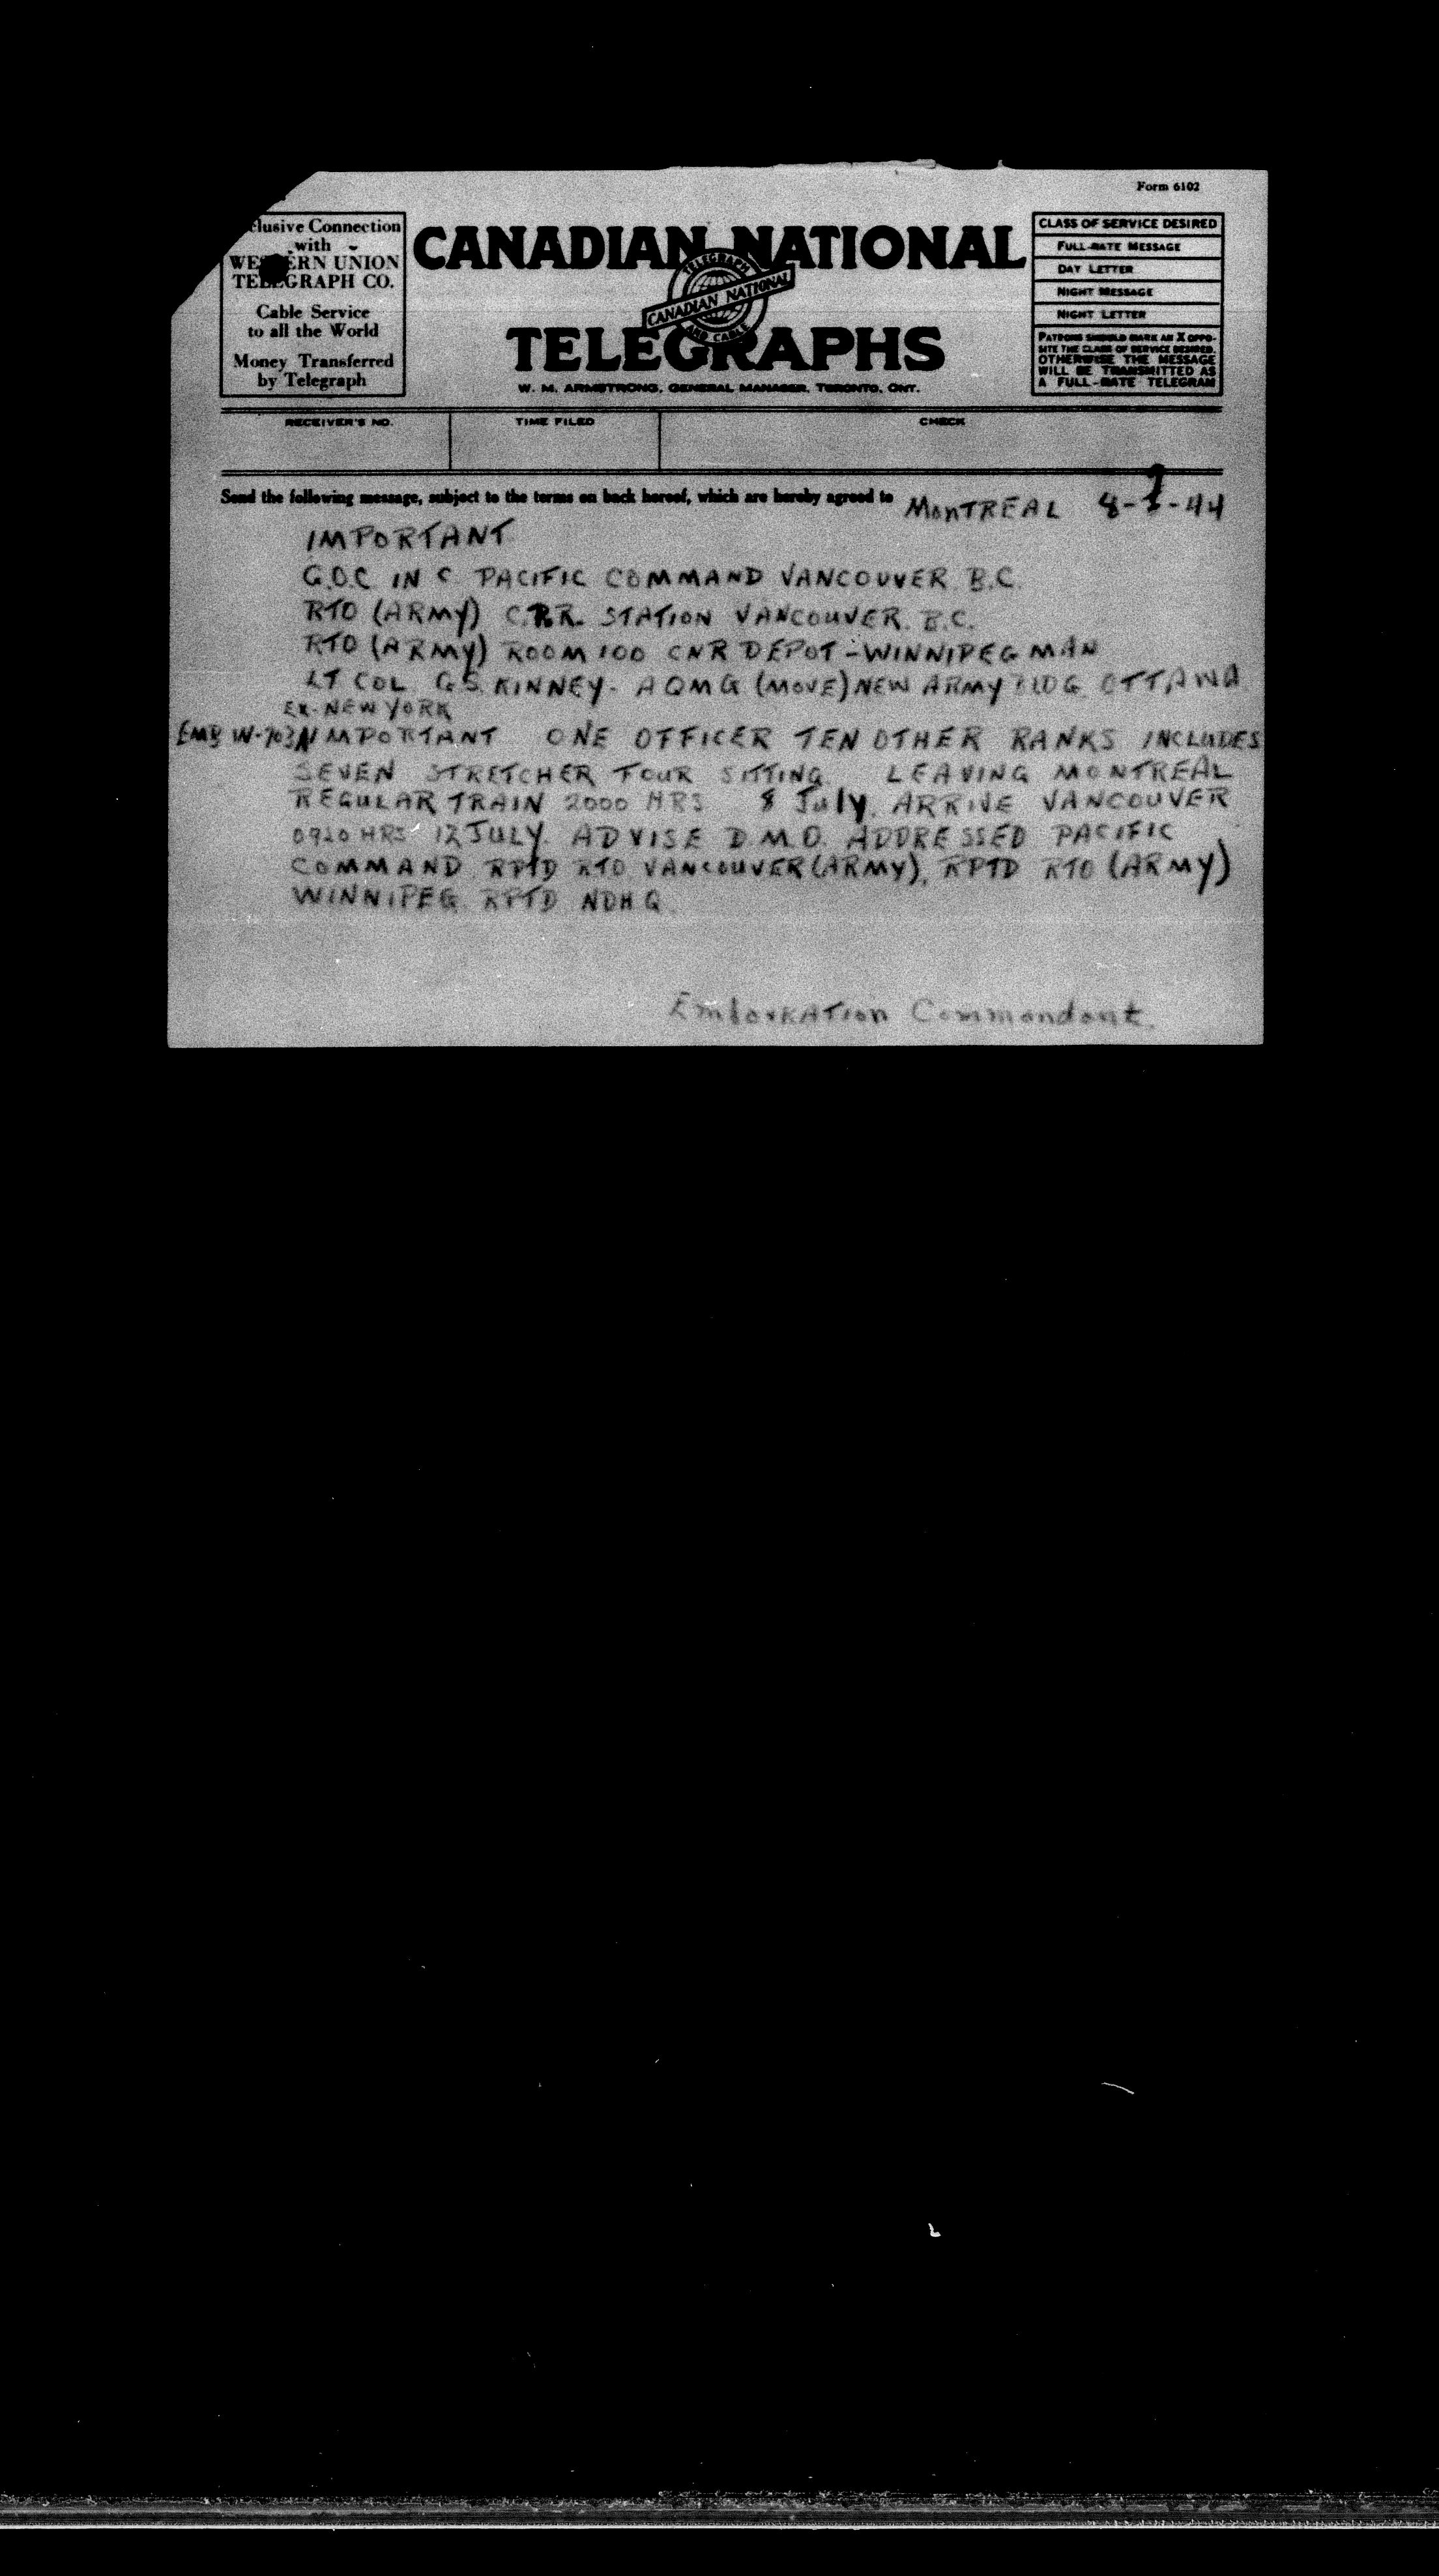 Form 6102
clusive Connection
with
WESTERN UNION
TELEGRAPH CO.
Cable Service
to all the World
Money Transferred
by Telegraph
CANADIAN NATIONAL
TELEGRAPH
CANADIAN NATIONAL
AND CABLE
TELEGRAPHS
W. M. ARMSTRONG, GENERAL MANAGER, TORONTO, ONT.
CLASS OF SERVICE DESIRED
FULL-RATE MESSAGE
DAY LETTER
NIGHT MESSAGE
NIGHT LETTER
PATRONS SHOULD MARK AN X OPPO-
SITE THE CLASS OF SERVICE DESIRED.
OTHERWISE THE MESSAGE
WILL BE TRANSMITTED AS
A FULL-RATE TELEGRAM
RECEIVER'S NO. TIME FILED CHECK
Send the following message, subject to the terms on back hereof, which are hereby agreed to
MONTREAL 8-7-44
IMPORTANT
G.O.C IN C PACIFIC COMMAND VANCOUVER B.C.
RTO (ARMY) C.P.R. STATION VANCOUVER. B.C.
RTO (ARMY) ROOM 100 CNR DEPOT - WINNIPEG MAN
LT COL G.S. KINNEY - AQMG (MOVE) NEW ARMY BLDG OTTAWA
EX-NEW YORK
EMB W-703 IMPORTANT ONE OFFICER TEN OTHER RANKS INCLUDES
SEVEN STRETCHER FOUR SITTING. LEAVING MONTREAL
REGULAR TRAIN 2000 HRS 8 July. ARRIVE VANCOUVER
0920 HRS 12 JULY. ADVISE D.M.O. ADDRESSED PACIFIC
COMMAND RPTD RTO VANCOUVER (ARMY), RPTD RTO (ARMY)
WINNIPEG RPTD NDHQ.
Embarkation Commandant.